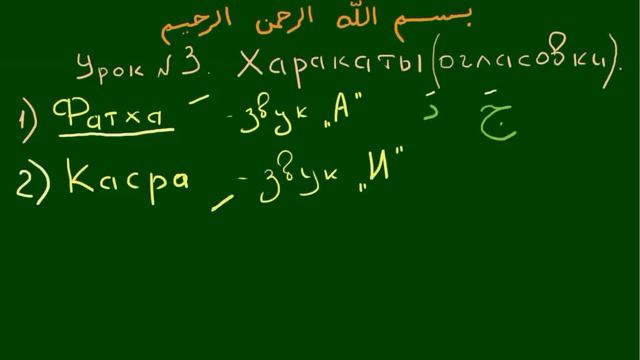 بسم الله الرحمن الرحيم
Урок №3. Харакаты (огласовки).
1) Фатха َ - звук „А" دَ جَ
2) Касра ِ - звук „И"